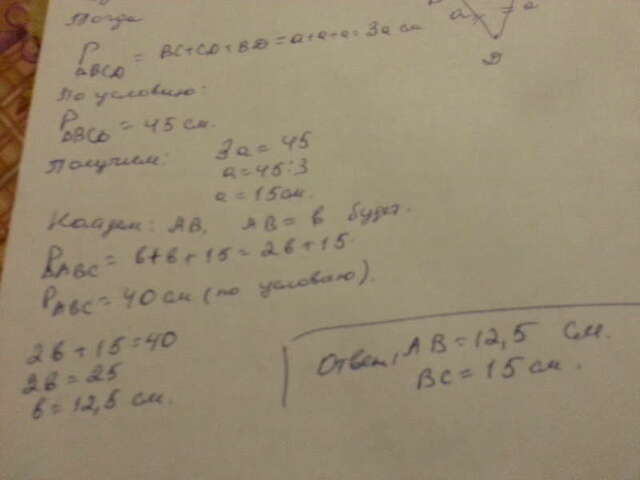 Тогда
P ΔBCD = BC+CD+BD = a+a+a = 3a см
a a
D
По условию:
P ΔBCD = 45 см.
Получим: 3a = 45
a = 45:3
a = 15 см.
Найдем: AB, AB = b будет.
P ΔABC = b+b+15 = 2b+15.
P ABC = 40 см (по условию).
2b+15=40
2b = 25
b = 12,5 см.
Ответ: AB = 12,5 см.
BC = 15 см.